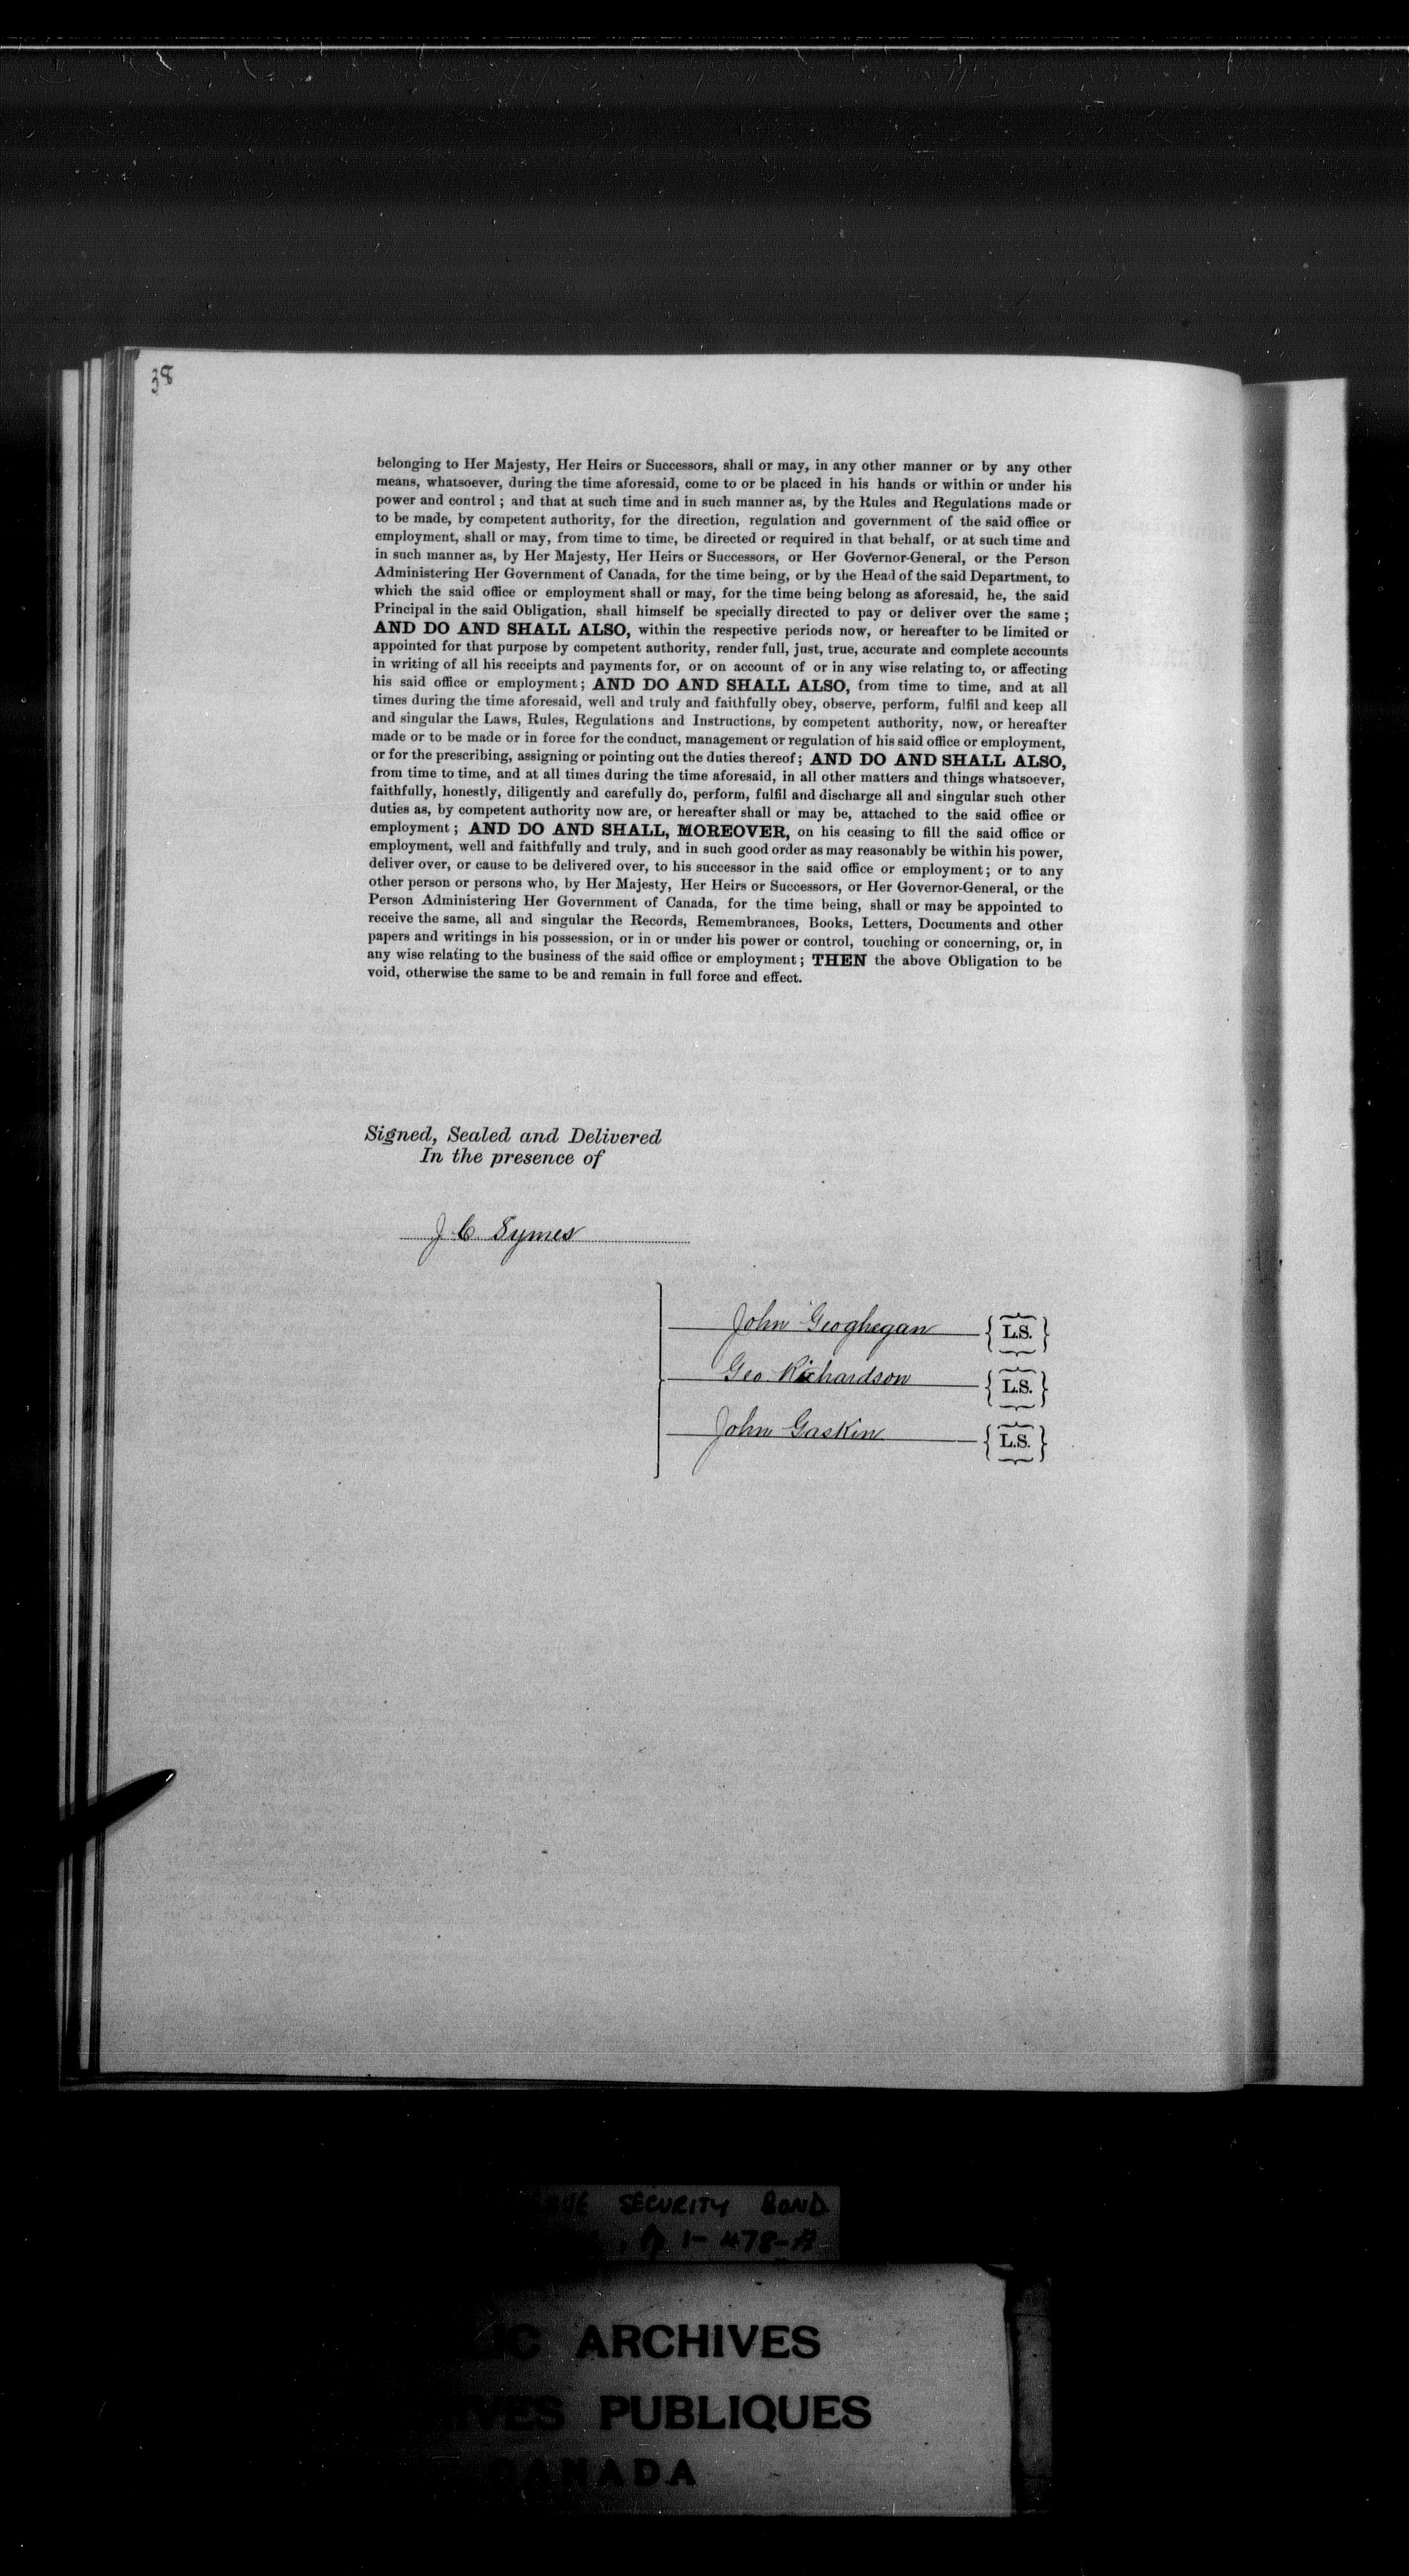 38
belonging to Her Majesty, Her Heirs or Successors, shall or may, in any other manner or by any other
means, whatsoever, during the time aforesaid, come to or be placed in his hands or within or under his
power and control ; and that at such time and in such manner as, by the Rules and Regulations made or
to be made, by competent authority, for the direction, regulation and government of the said office or
employment, shall or may, from time to time, be directed or required in that behalf, or at such time and
in such manner as, by Her Majesty, Her Heirs or Successors, or Her Governor-General, or the Person
Administering Her Government of Canada, for the time being, or by the Head of the said Department, to
which the said office or employment shall or may, for the time being belong as aforesaid, he, the said
Principal in the said Obligation, shall himself be specially directed to pay or deliver over the same ;
AND DO AND SHALL ALSO, within the respective periods now, or hereafter to be limited or
appointed for that purpose by competent authority, render full, just, true, accurate and complete accounts
in writing of all his receipts and payments for, or on account of or in any wise relating to, or affecting
his said office or employment ; AND DO AND SHALL ALSO, from time to time, and at all
times during the time aforesaid, well and truly and faithfully obey, observe, perform, fulfil and keep all
and singular the Laws, Rules, Regulations and Instructions, by competent authority, now, or hereafter
made or to be made or in force for the conduct, management or regulation of his said office or employment,
or for the prescribing, assigning or pointing out the duties thereof ; AND DO AND SHALL ALSO,
from time to time, and at all times during the time aforesaid, in all other matters and things whatsoever,
faithfully, honestly, diligently and carefully do, perform, fulfil and discharge all and singular such other
duties as, by competent authority now are, or hereafter shall or may be, attached to the said office or
employment ; AND DO AND SHALL, MOREOVER, on his ceasing to fill the said office or
employment, well and faithfully and truly, and in such good order as may reasonably be within his power,
deliver over, or cause to be delivered over, to his successor in the said office or employment ; or to any
other person or persons who, by Her Majesty, Her Heirs or Successors, or Her Governor-General, or the
Person Administering Her Government of Canada, for the time being, shall or may be appointed to
receive the same, all and singular the Records, Remembrances, Books, Letters, Documents and other
papers and writings in his possession, or in or under his power or control, touching or concerning, or, in
any wise relating to the business of the said office or employment ; THEN the above Obligation to be
void, otherwise the same to be and remain in full force and effect.
Signed, Sealed and Delivered
In the presence of
J. C. Symes
John Geoghegan {L.S.}
Geo. Richardson {L.S.}
John Gaskin {L.S.}
SECURITY BOND
1-478-A
ARCHIVES
PUBLIQUES
CANADA